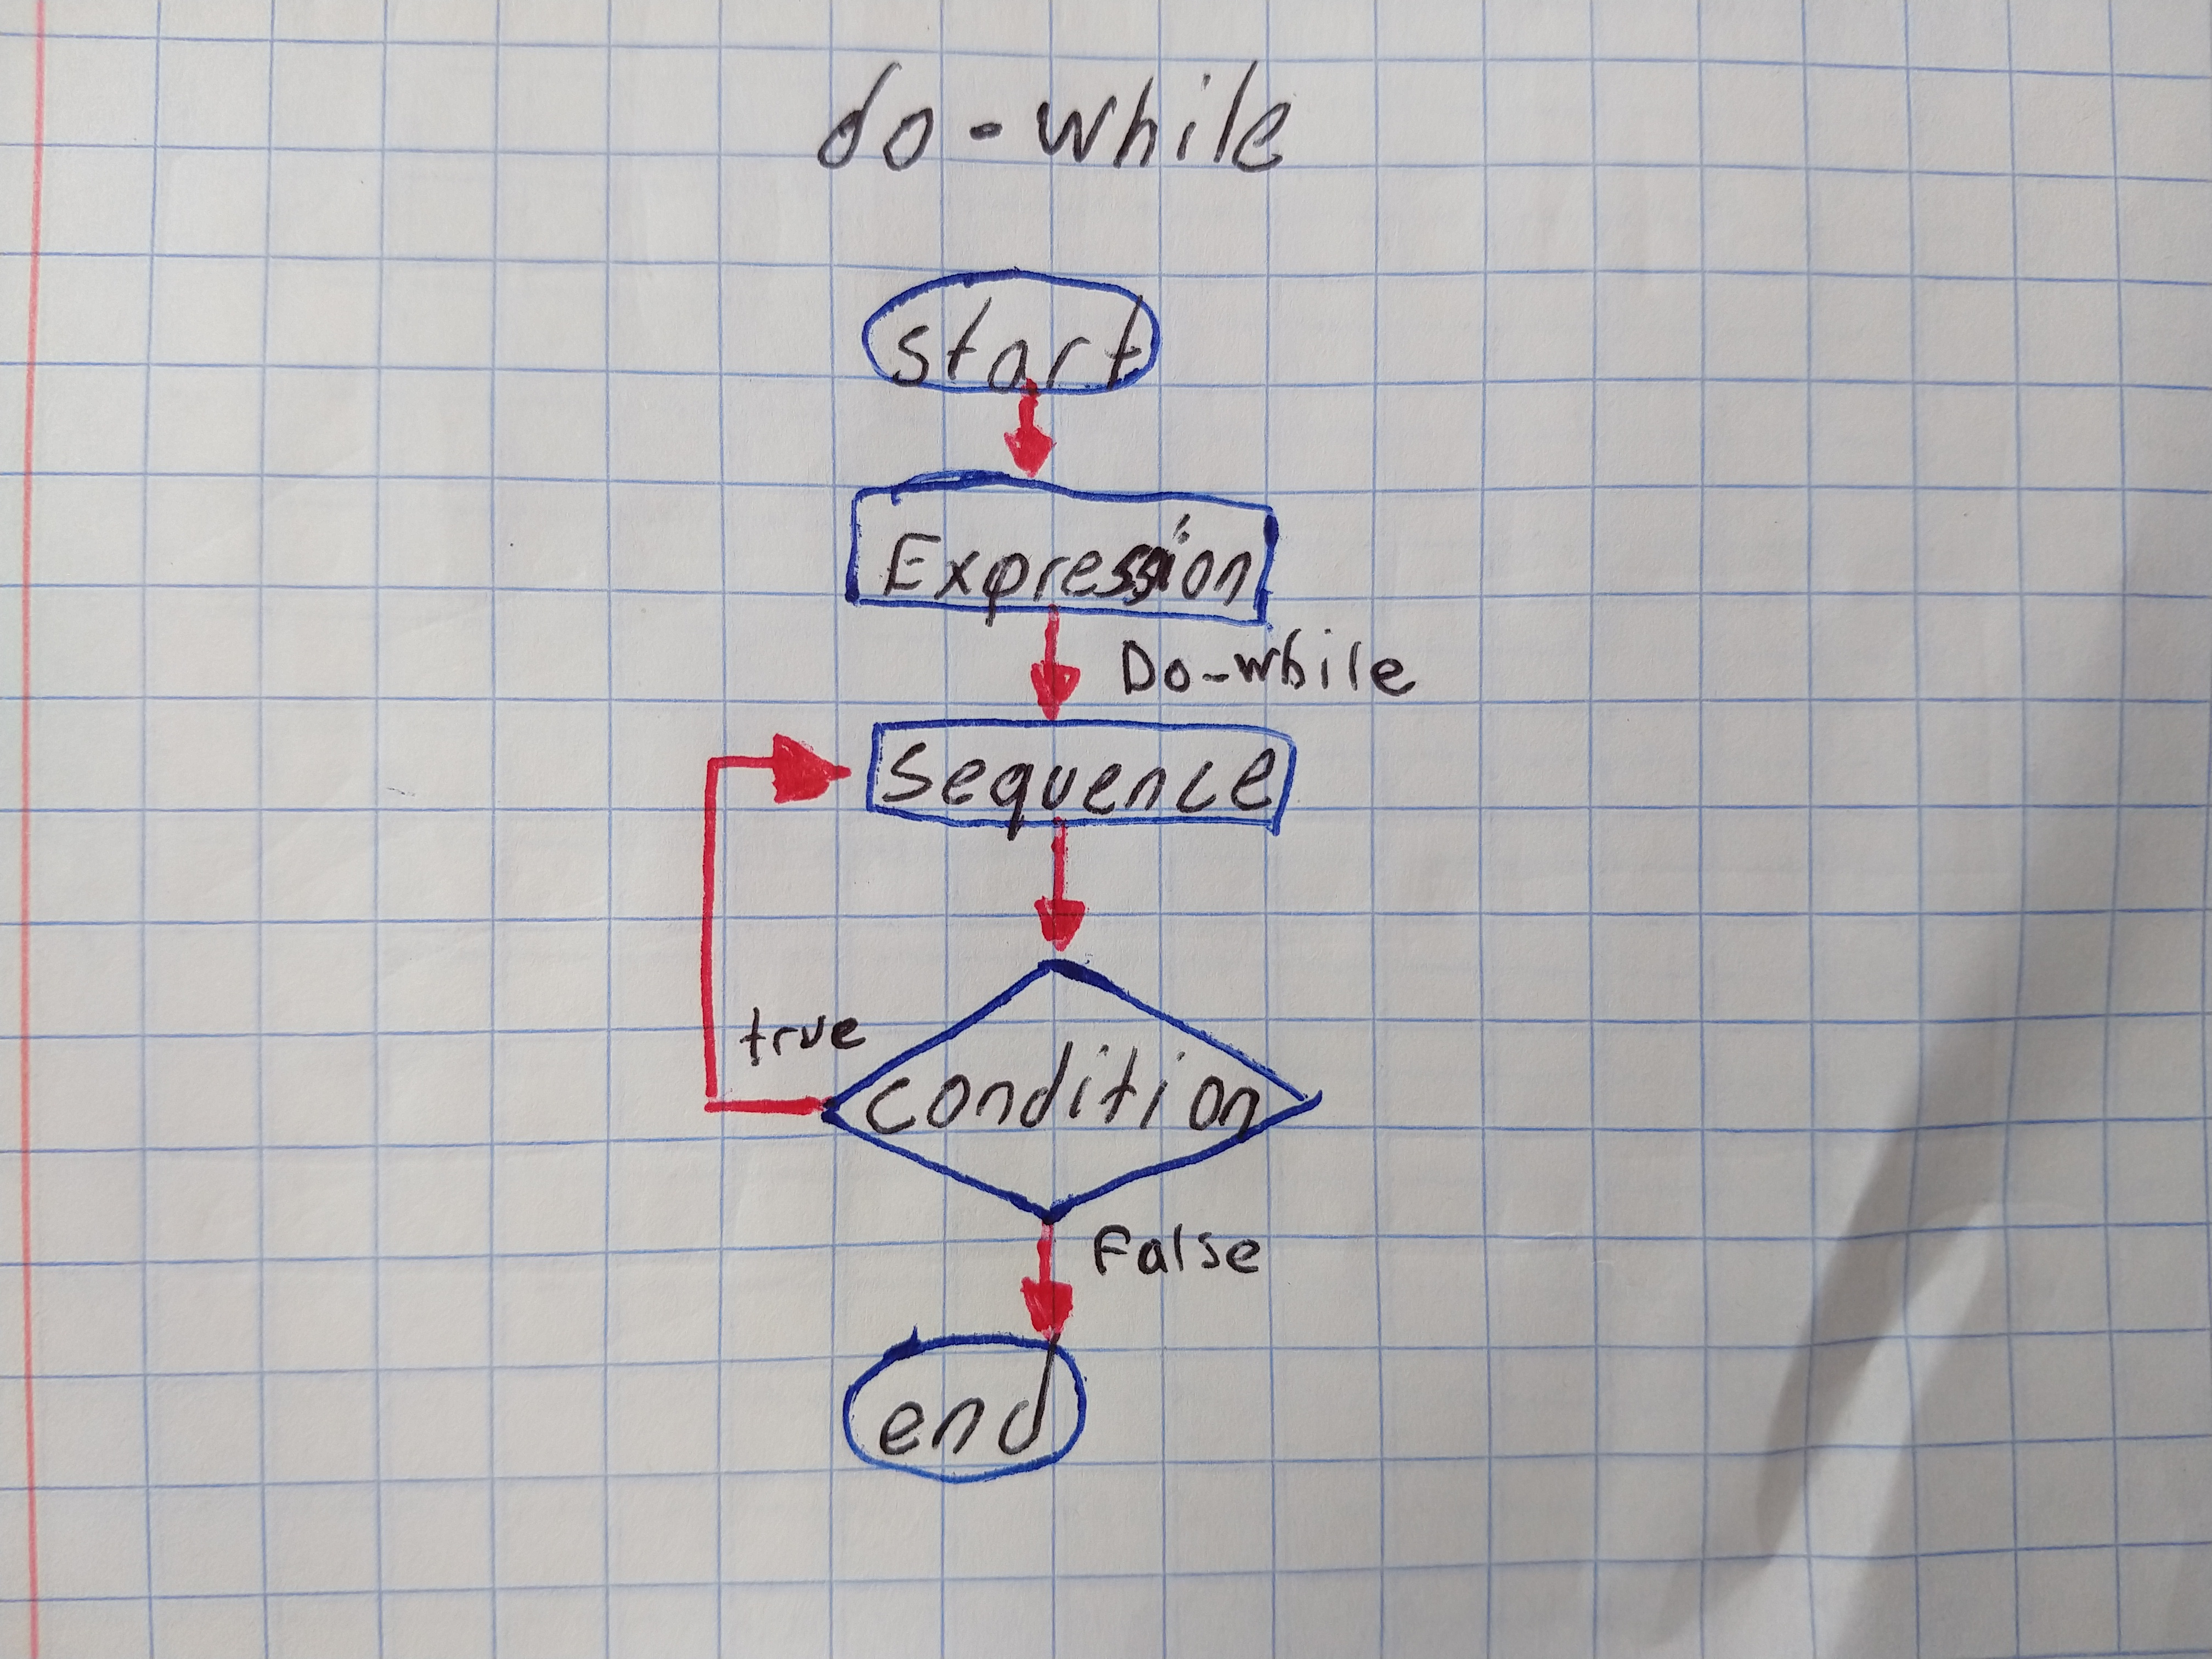 do-while
start
Expression
Do-while
sequence
true
condition
False
end